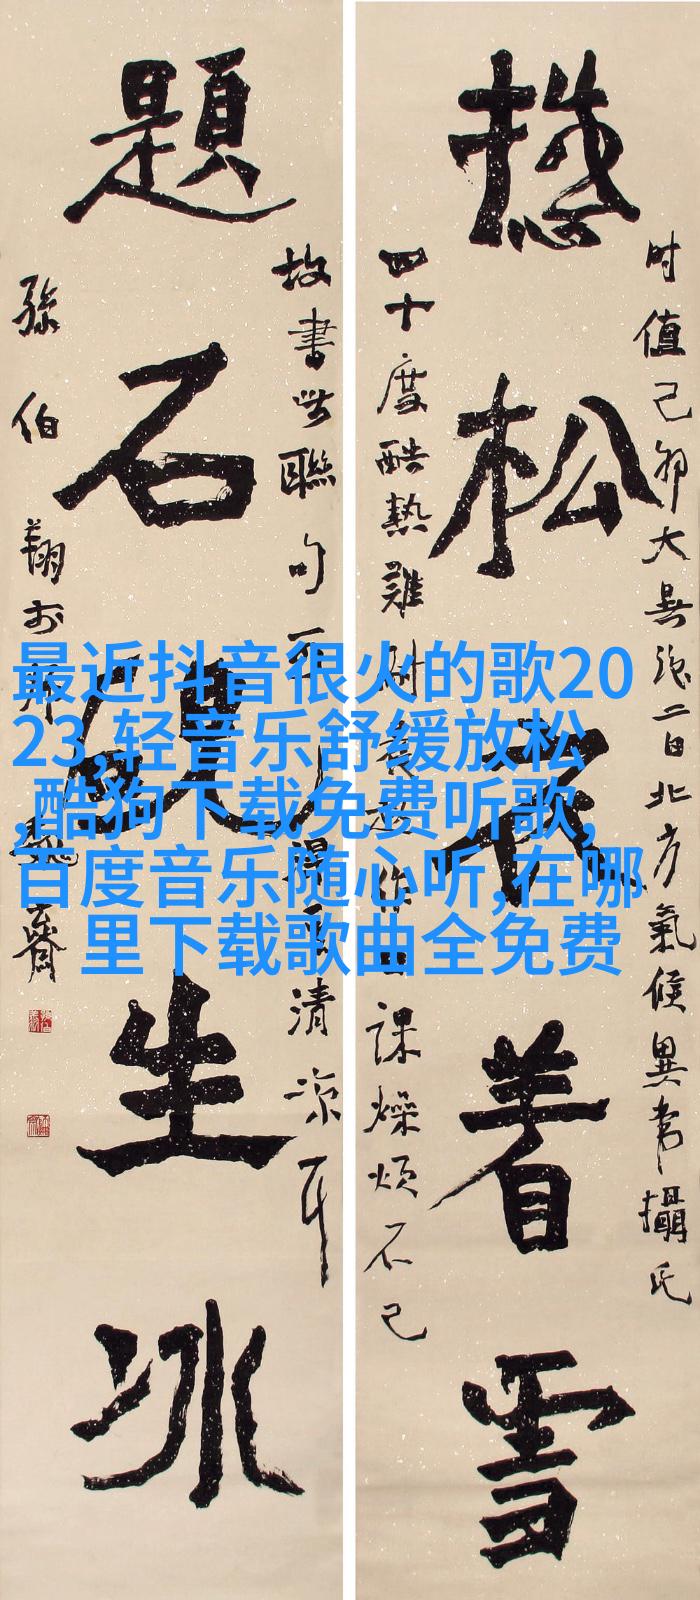 松衣着雪
时值己卯大暑後二日北方氣候異常攝氏
四十度酷熱難耐作課燥烦不已
題石硯生冰
故書此聯句清凉耳
孫伯翔於齋
最近抖音很火的歌20
23,轻音乐舒缓放松
,酷狗下载免费听歌,
百度音乐随心听,在哪
里下载歌曲全免费